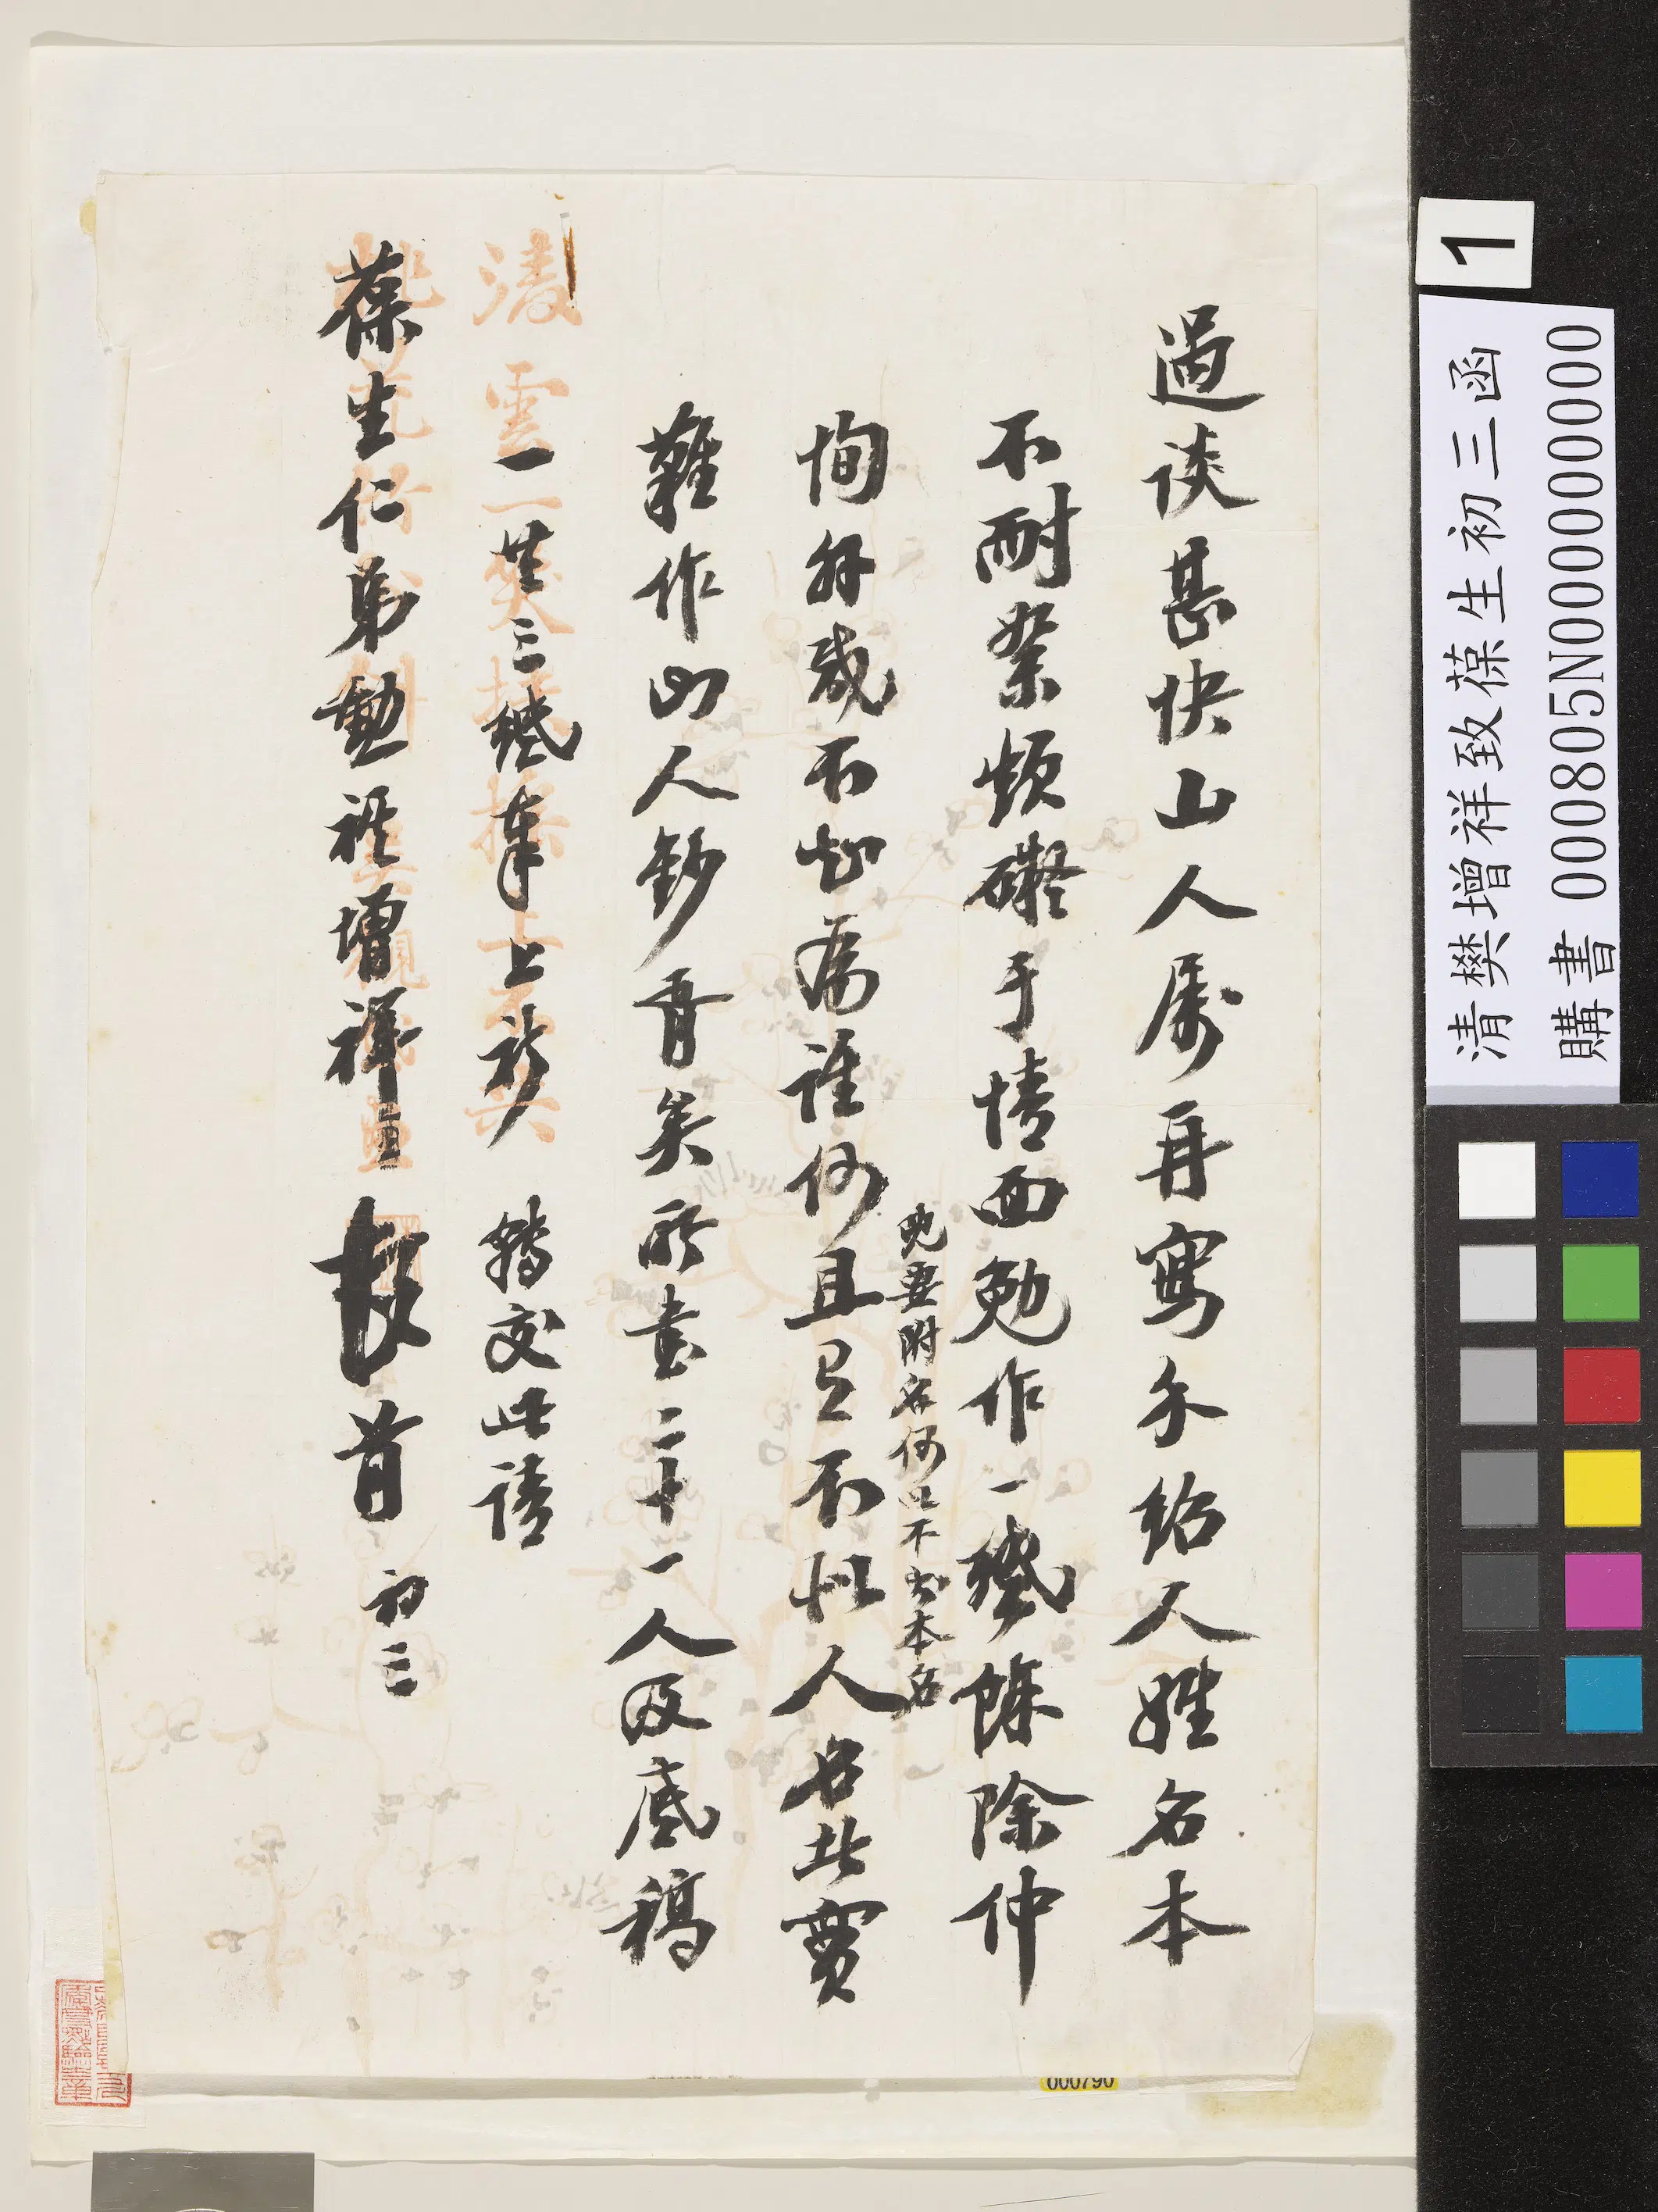 過談甚快山人屬再寫介紹人姓名本
不耐繁煩礙于情面勉作一紙餘除仲
恂外或不知為誰何且且不似人名此實
既要附名何以不書本名
難作山人鈔胥矣所書二十一人及底稿
一二三紙奉上祈 轉交此請
葆生仁弟勳祺增祥頓首 初三
清樊增祥致葆生初三函
購書 000805N000000000
1
000790